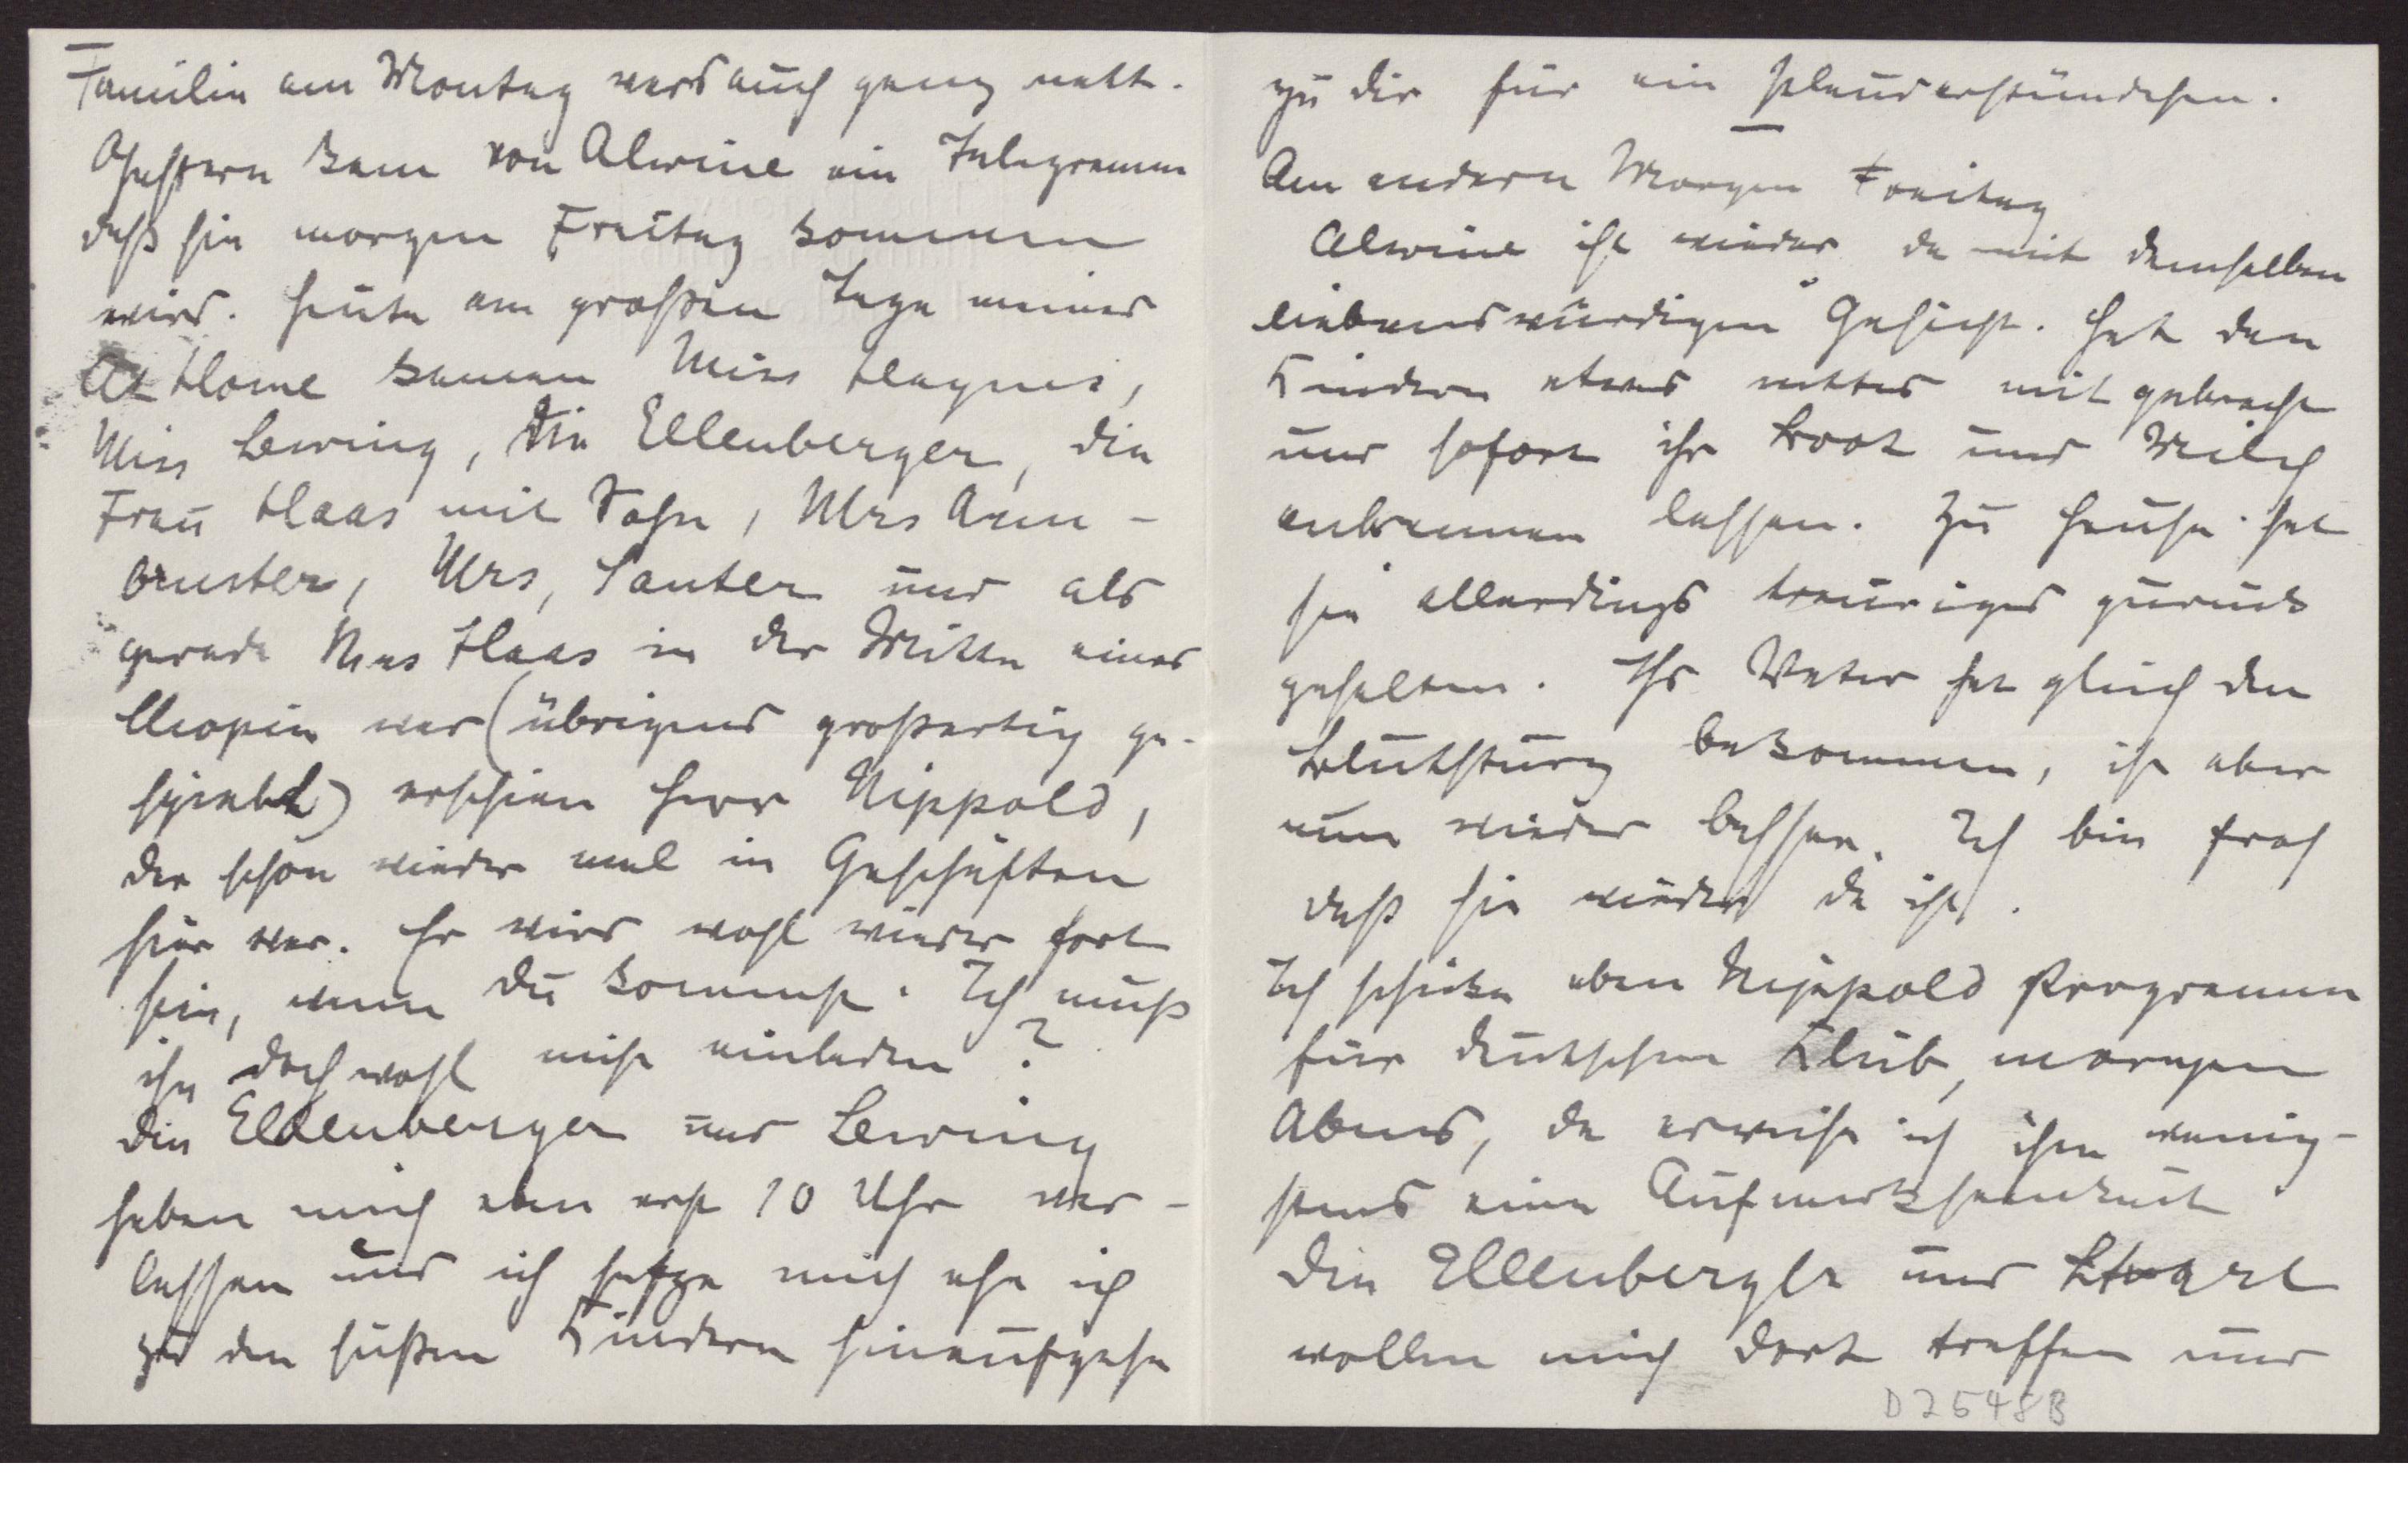 Familie am Montag ward auch ganz nett.
Gestern kam von Alwine ein Telegramm
daß sie morgen Freitag kommen
wird. Heute am großen Tage meines
At Home kamen Miss Haynes,
Miss Lewing, die Ellenberger, die
Frau Haas mit Sohn, Mrs Arm-
bruster, Mrs, Santer und als
gerade Mrs Haas in der Mitte eines
Chopin war (übrigens großartig ge-
spielt) erschien Herr Nippold,
der schon wieder mal in Geschäften
hier war. Er wird wohl wieder fort
sein, wenn du kommst. Ich muß
ihn doch wohl nicht einladen?
Die Ellenberger und Lewing
haben mich eben erst 10 Uhr ver-
lassen und ich setze mich ehe ich
zu den süßen Kindern hinaufgehe
zu dir für ein Plauderstündchen.
Am andern Morgen Freitag
Alwine ist wieder da mit demselben
liebenswürdigen Gesicht. Hat den
Kindern etwas nettes mit gebracht
und sofort ihr Brot und Milch
anbrennen lassen. Zu Hause hat
sie allerdings trauriges zurück
gehalten. Ihr Vater hat gleich den
Blutsturz bekommen, ist aber
nun wieder besser. Ich bin froh
daß sie wieder da ist.
Ich schicke eben Nippold Programm
für deutschen Klub, morgen
Abend, da erweise ich ihm wenig-
stens eine Aufmerksamkeit
Die Ellenberger und
wollen mich dort treffen und
D 2548B